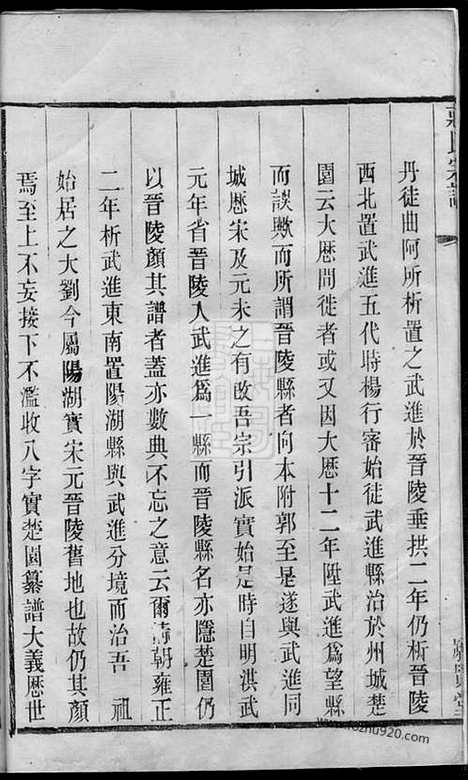 丹徒曲阿所析置之武進於晉陵垂拱二年仍析晉陵
西北置武進五代時楊行密始徙武進縣治於州城楚
園云大歷間徙者或又因大歷十二年陞武進爲望縣
而談歟而所謂晉陵縣者向本附郭至是遂與武進同
城歷宋及元未之有改吾宗引派實始是時自明洪武
元年省晉陵人武進爲一縣而晉陵縣名亦隱楚園仍
以晉陵顏其譜者蓋亦數典不忘之意云爾清朝雍正
二年析武進東南置陽湖縣與武進分境而治吾 祖
始居之大劉今屬陽湖實宋元晉陵舊地也故仍其顏
焉至上不妄接下不濫收八字實楚園纂譜大義歷世
www.fozhu920.com